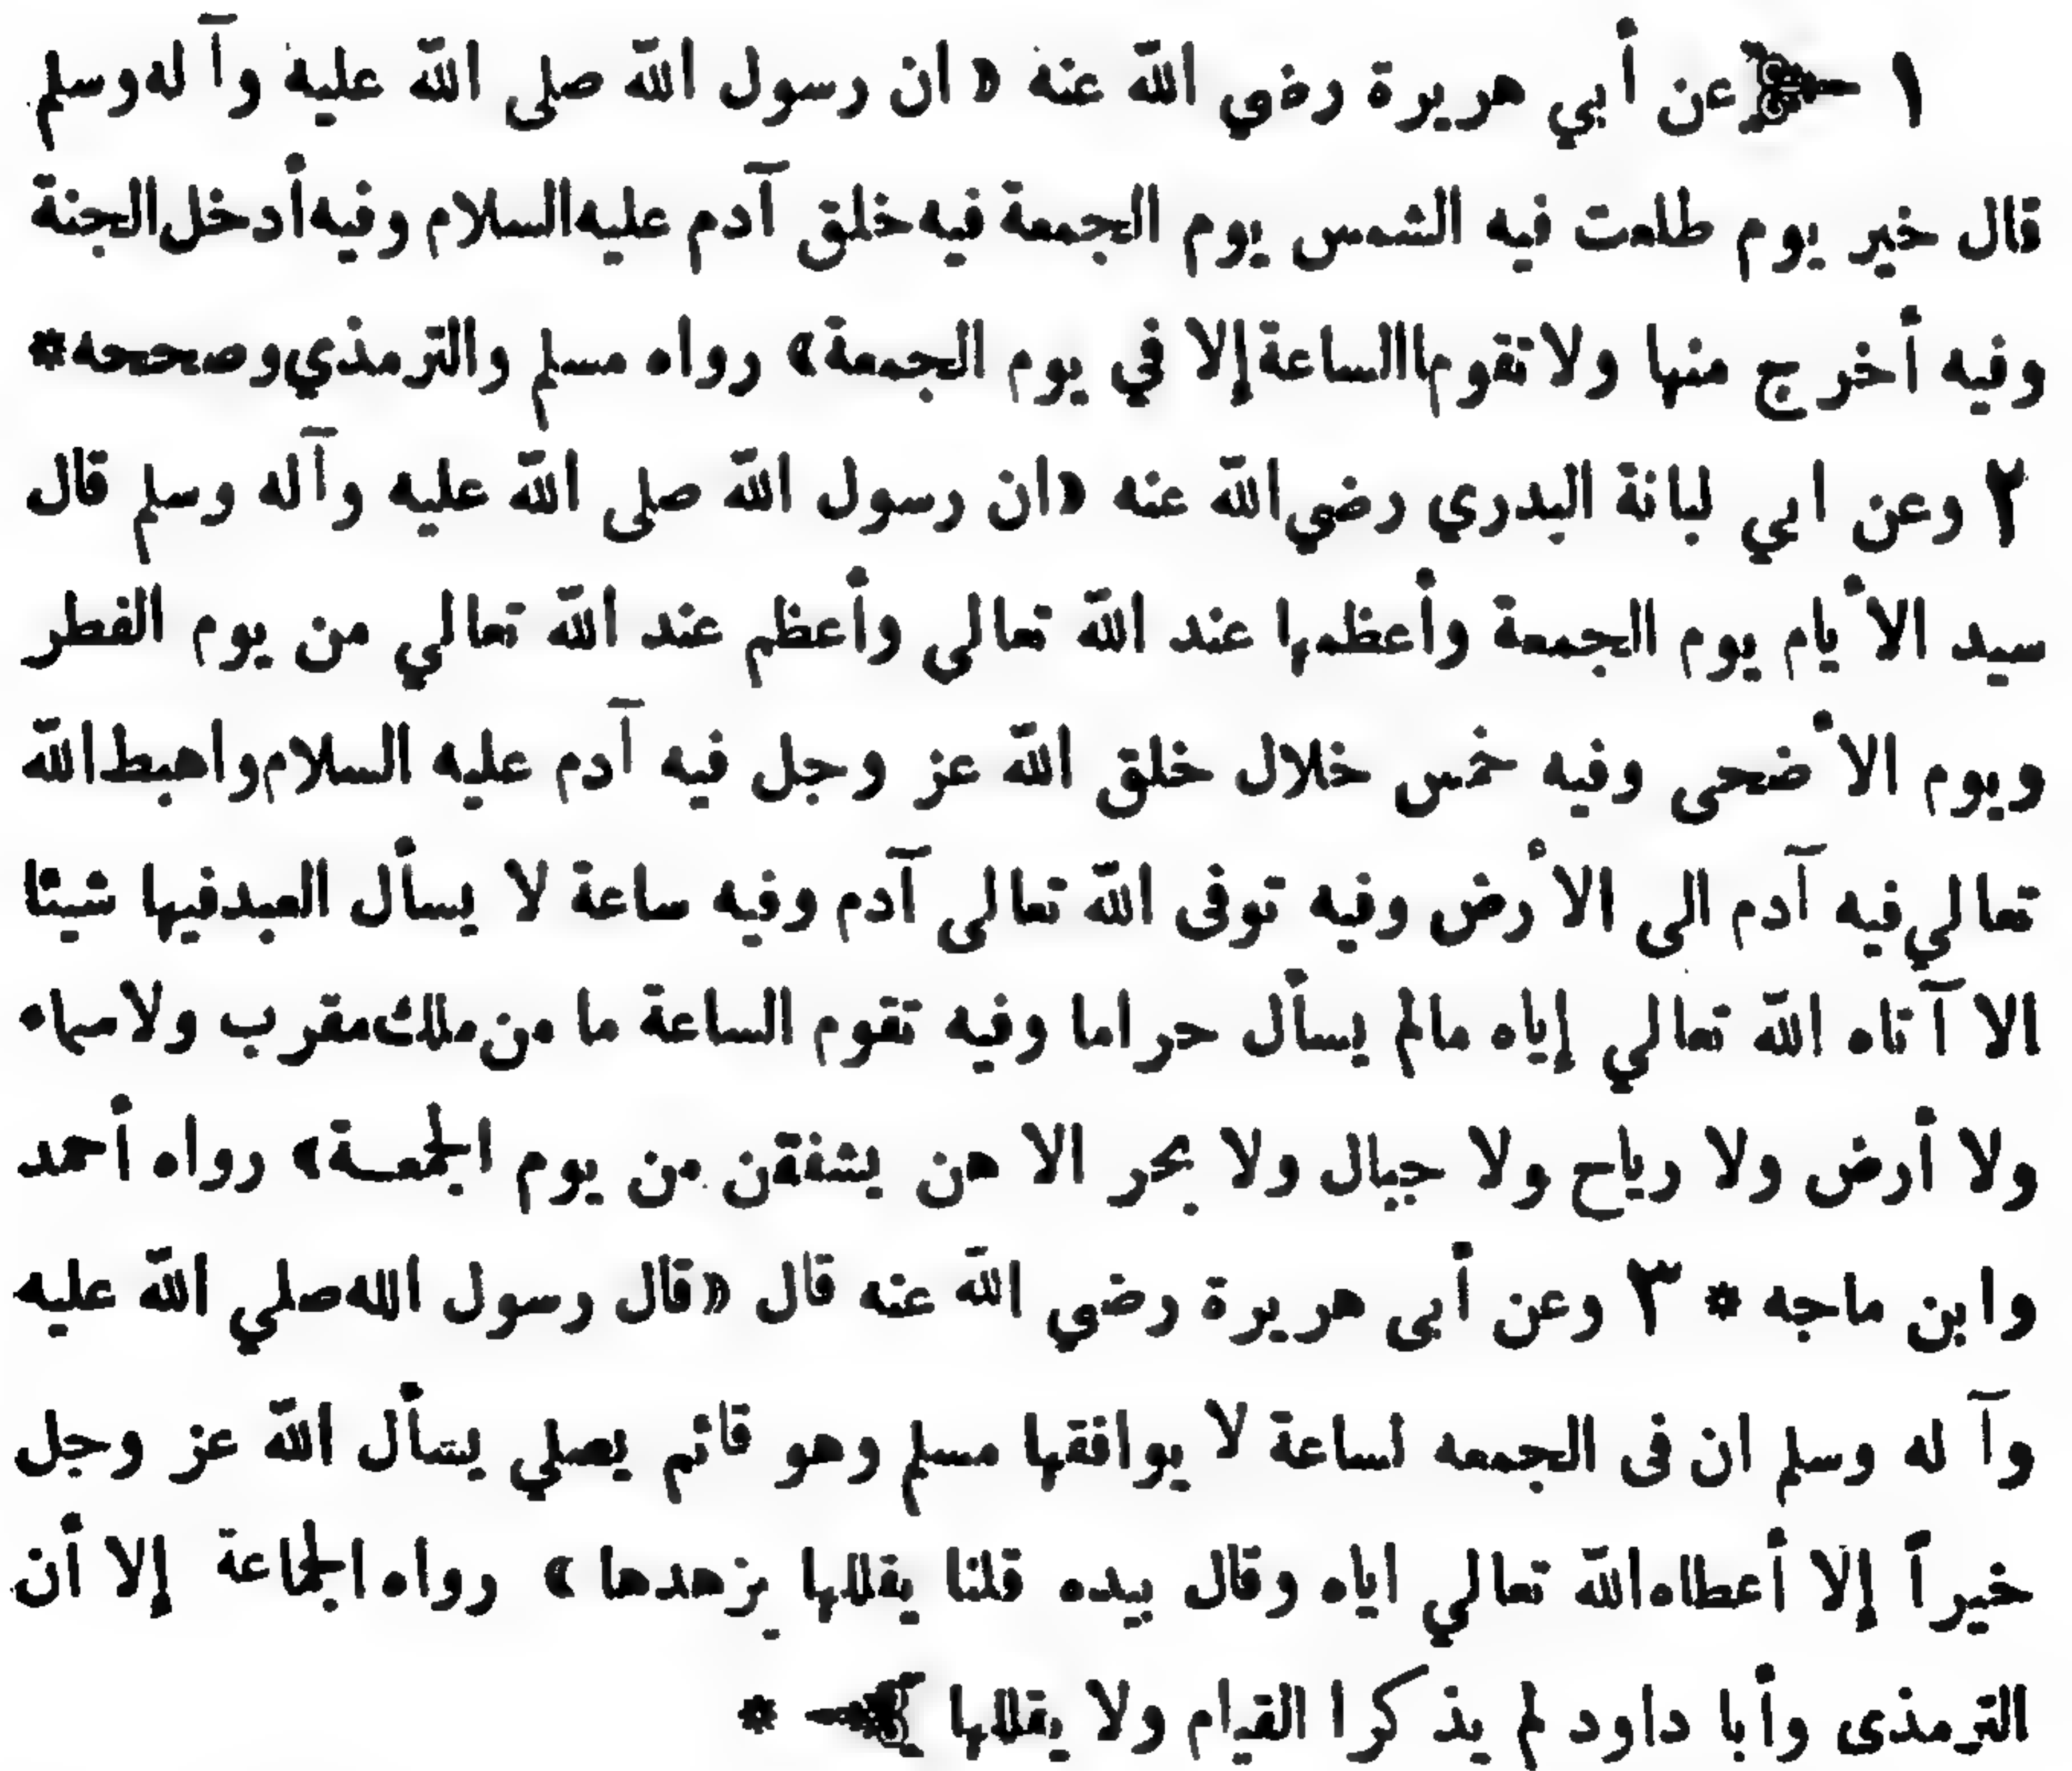 ١ عن أبي هريرة رضي الله عنه « ان رسول الله صلى الله عليه وآله وسلم
قال خير يوم طلعت فيه الشمس يوم الجمعة فيه خلق آدم عليه السلام وفيه أدخل الجنة
وفيه أخرج منها ولا تقوم الساعة إلا في يوم الجمعة » رواه مسلم والترمذي وصححه *
٢ وعن ابي لبانة البدري رضي الله عنه « ان رسول الله صلى الله عليه وآله وسلم قال
سيد الأيام يوم الجمعة وأعظمها عند الله تعالى وأعظم عند الله تعالي من يوم الفطر
ويوم الأضحى وفيه خمس خلال خلق الله عز وجل فيه آدم عليه السلام واهبط الله
تعالي فيه آدم الى الأرض وفيه توفى الله تعالى آدم وفيه ساعة لا يسأل العبد فيها شيئا
الا آتاه الله تعالي إياه مالم يسأل حراما وفيه تقوم الساعة ما من ملك مقرب ولا سماء
ولا أرض ولا رياح ولا جبال ولا بحر الا هن يشفقن من يوم الجمعة » رواه أحمد
وابن ماجه * ٣ وعن أبى هريرة رضي الله عنه قال « قال رسول الله صلي الله عليه
وآله وسلم ان فى الجمعه لساعة لا يوافقها مسلم وهو قائم يصلي يسأل الله عز وجل
خيراً إلا أعطاه الله تعالي اياه وقال بيده قلنا يقللها يزهدها » رواه الجماعة إلا أن
الترمذى وأبا داود لم يذكرا القيام ولا يقللها *